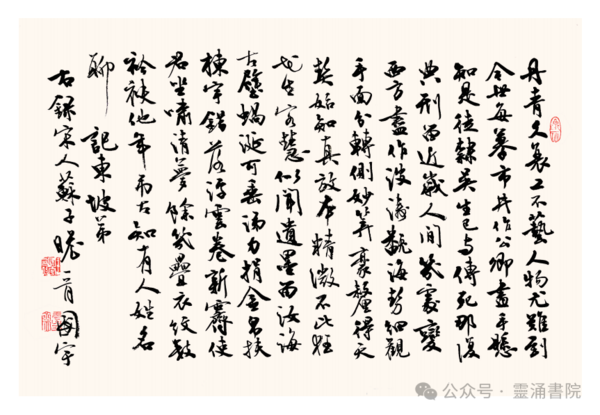 丹青久衰工不藝人物尤難到
今世每摹市井作公卿畫手懸
知是徒隸吳生已與傳死那復
典刑留近歲人間幾處變
西方盡作波濤翻海勢細觀
手面分轉側妙算豪釐得天
契始知真放本精微不比狂
花生客慧似聞遺墨留汝海
古壁蝸涎可垂涕力捐金帛扶
棟宇錯落浮雲卷新霽使
君坐嘯清夢餘幾疊衣紋數
衿袂他年弔古知有人姓名
聊記東坡弟
右錄宋人蘇子瞻一首國宇
公众号·靈涌書院